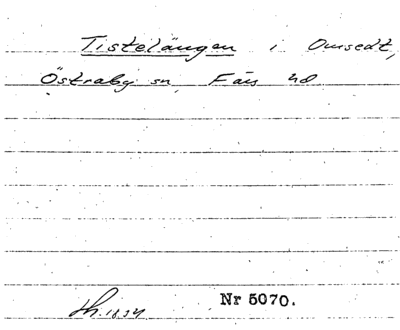 Tistelängen i Omsedt,
Östraby sn, Färs hd
Nr 5070.